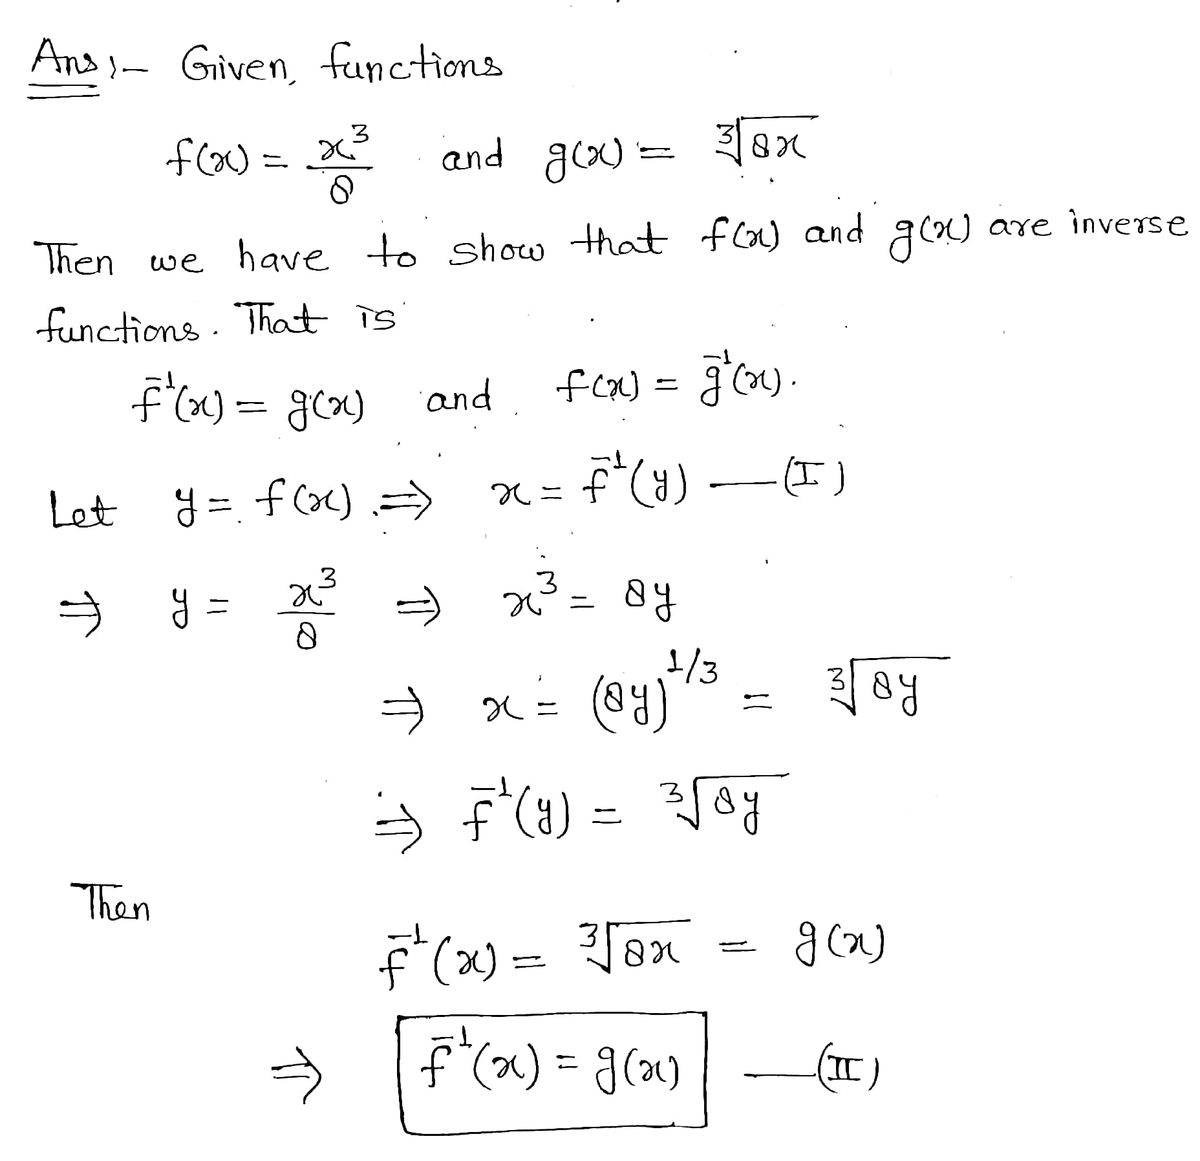 Ans :- Given, functions
f(x) = x³/8 and g(x) = ∛8x
Then we have to show that f(x) and g(x) are inverse
functions. That is
f⁻¹(x) = g(x) and f(x) = g⁻¹(x).
Let y = f(x) ⇒ x = f⁻¹(y) —(I)
⇒ y = x³/8 ⇒ x³ = 8y
⇒ x = (8y)^1/3 = ∛8y
⇒ f⁻¹(y) = ∛8y
Then
f⁻¹(x) = ∛8x = g(x)
⇒ f⁻¹(x) = g(x) —(II)